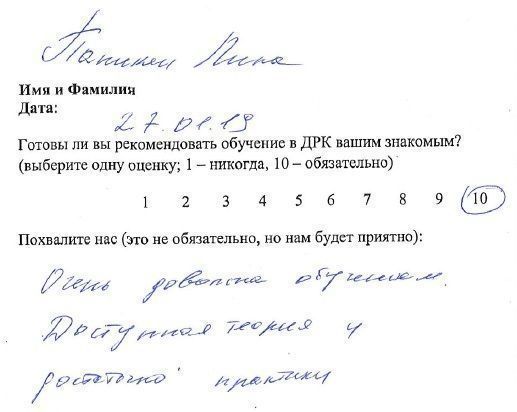 Лина
Имя и Фамилия
Дата:
27.01.19
Готовы ли вы рекомендовать обучение в ДРК вашим знакомым?
(выберите одну оценку; 1 – никогда, 10 – обязательно)
1 2 3 4 5 6 7 8 9 10
Похвалите нас (это не обязательно, но нам будет приятно):
Очень довольна обучением.
Доступная теория и
достаточно практики